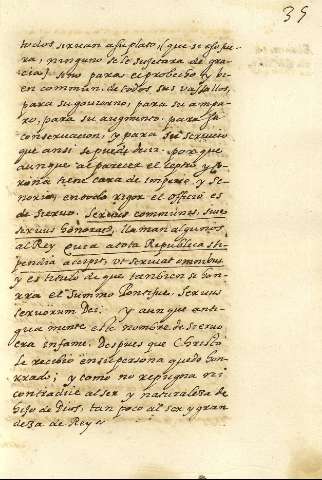 35
todos siruan a su plato, (que se esso fue
ra, ninguno se le sujetara de gra
cia) sino para el probecho, y bi
en commun de todos sus vassallos,
para su gouierno, para su ampa
ro, para su augmento, para su
conseruacion, y para su seruicio
que ansi se puede decir. porque
aunque al parecer el ceptro y co
rona tiene cara de imperio y se
norio, en todo rigor el officio es
de sieruo. Seruus communis, siue
seruus honoratus, llaman algunos
al Rey. quia a tota Republica sti
pendia accipit, vt seruiat omnibus.
y es titulo de que tanbien se hon
rra el Summo Pontifice. Seruus
seruorum Dei. y aunque anti
gua mente este nombre de sieruo
era infame, despues que Christo
le recibio en su persona quedo hon
rrado, y como no repugna ni
contradice al ser y naturaleza de
hijo de Dios, tan poco al ser y gran
deza de Rey